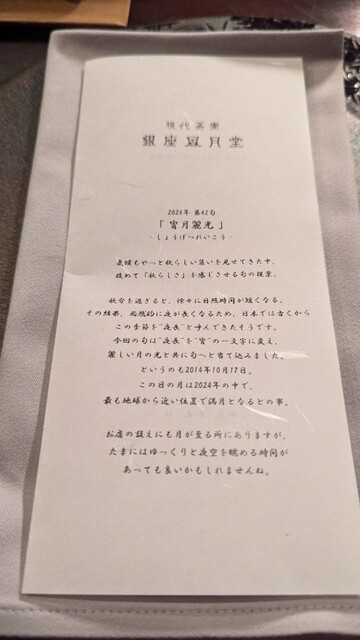 現代茶寮
銀座風月堂
2024年 第42旬
「宵月麗光」
- しょうげつれいこう -
気候もやっと秋らしい装いを見せてきた中、
改めて「秋らしさ」を感じさせる旬の提案。
秋分を過ぎると、徐々に日照時間が短くなる。
その結果、必然的に夜が長くなるため、日本では古くから
この季節を"夜長"と呼んできたそうです。
今回の旬は"夜長"を"宵"の一文字に変え、
麗しい月の光と共に旬へと当て込みました。
というのも2014年10月17日。
この日の月は2024年の中で、
最も地球から近い位置で満月となるとの事。
お店の設えにも月が至る所にありますが、
たまにはゆっくりと夜空を眺める時間が
あっても良いかもしれませんね。